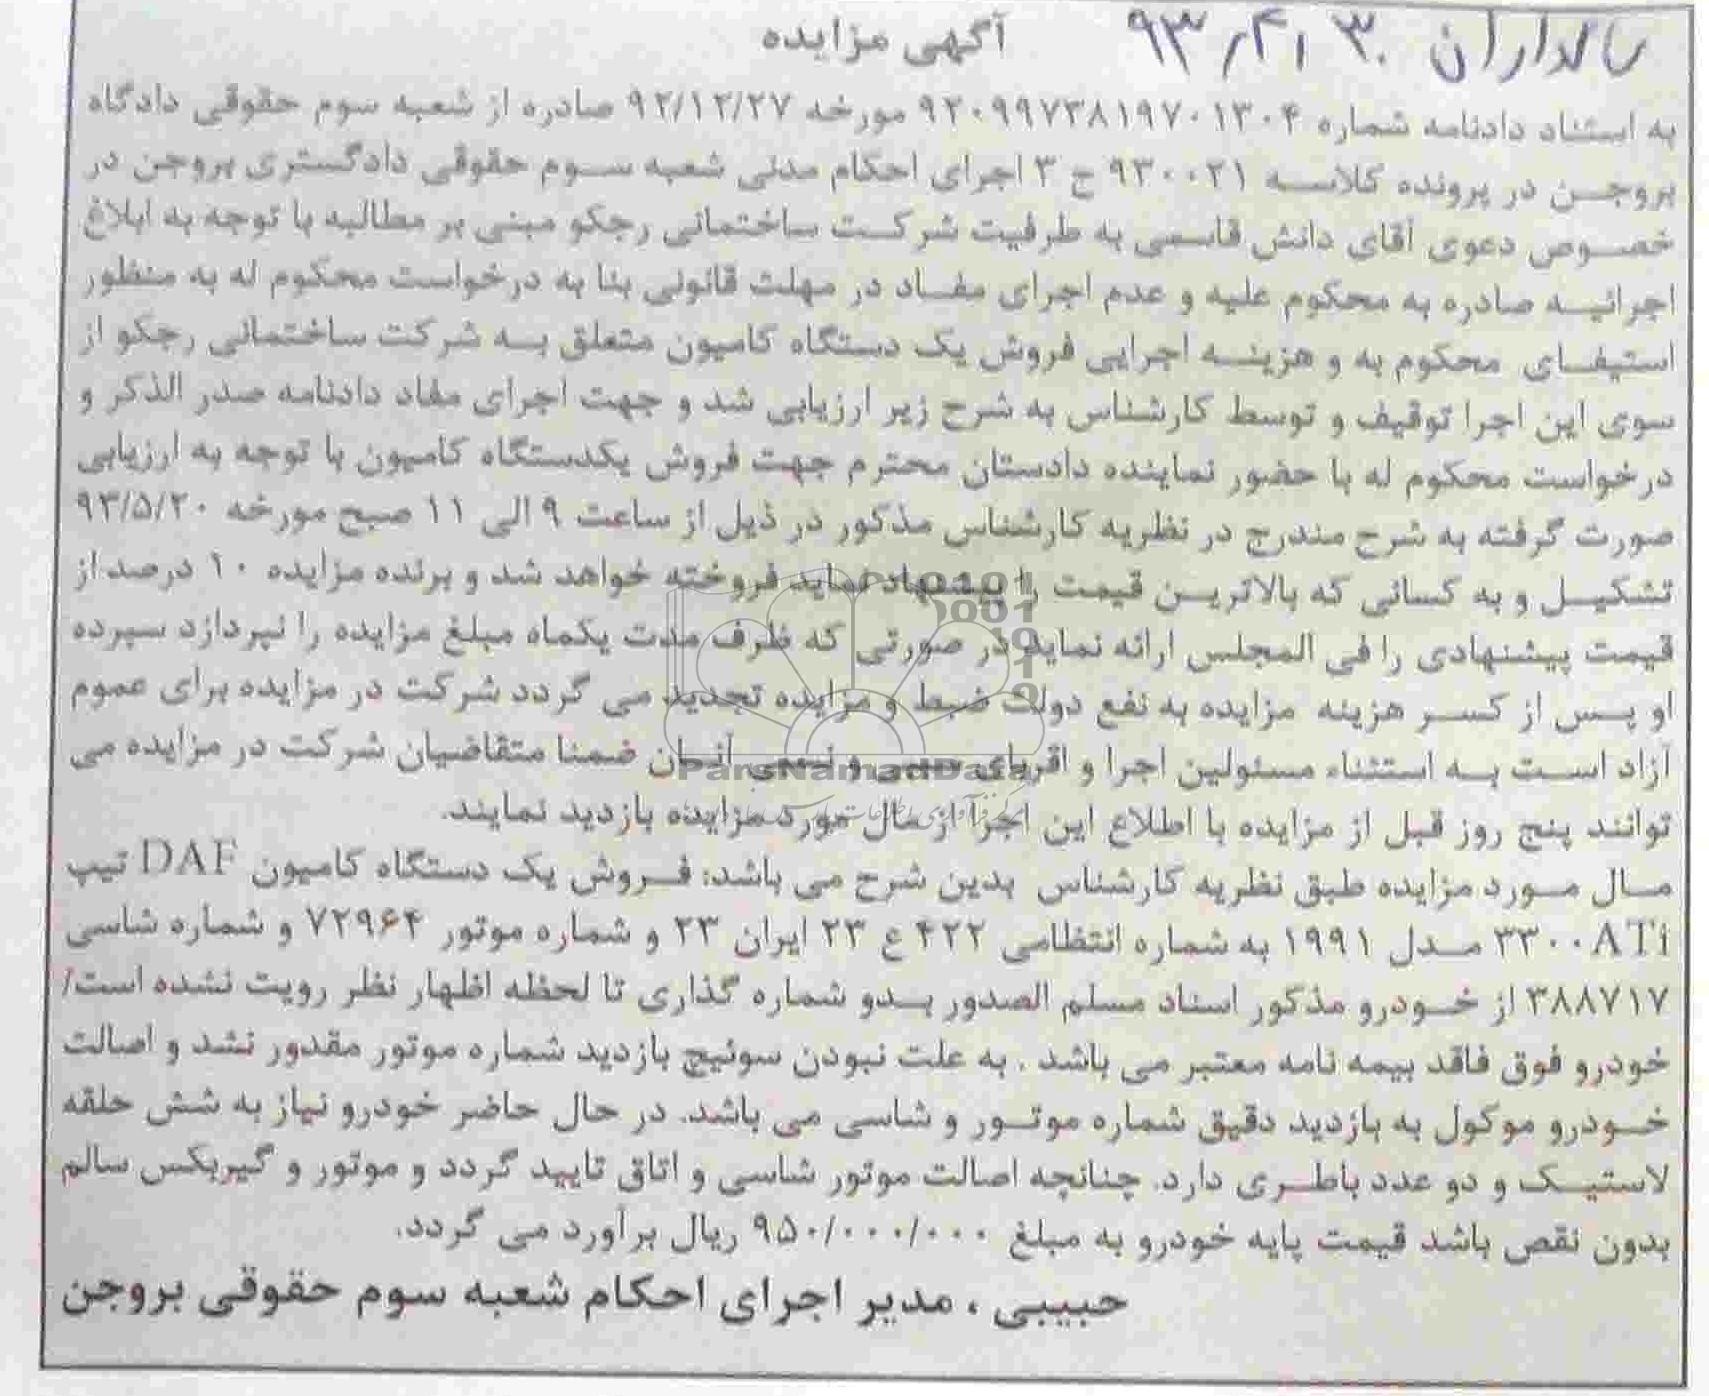 ۹۳،۴،۳۰
آگهی مزایده
به استناد دادنامه شماره ۹۲۰۹۹۷۳۸۱۹۷۰۱۳۰۴ مورخه ۹۲/۱۲/۲۷ صادره از شعبه سوم حقوقی دادگاه
بروجن در پرونده کلاسه ۹۳۰۰۲۱ ج ۳ اجرای احکام مدنی شعبه سوم حقوقی دادگستری بروجن در
خصوص دعوی آقای دانش قاسمی به طرفیت شرکت ساختمانی رجکو مبنی بر مطالبه با توجه به ابلاغ
اجرائیه صادره به محکوم علیه و عدم اجرای مفاد در مهلت قانونی بنا به درخواست محکوم له به منظور
استیفای محکوم به و هزینه اجرایی فروش یک دستگاه کامیون متعلق به شرکت ساختمانی رجکو از
سوی این اجرا توقیف و توسط کارشناس به شرح زیر ارزیابی شد و جهت اجرای مفاد دادنامه صدر الذکر و
درخواست محکوم له با حضور نماینده دادستان محترم جهت فروش یکدستگاه کامیون با توجه به ارزیابی
صورت گرفته به شرح مندرج در نظریه کارشناس مذکور در ذیل از ساعت ۹ الی ۱۱ صبح مورخه ۹۳/۵/۲۰
تشکیل و به کسانی که بالاترین قیمت را پیشنهاد نماید فروخته خواهد شد و برنده مزایده ۱۰ درصد از
قیمت پیشنهادی را فی المجلس ارائه نماید در صورتی که ظرف مدت یکماه مبلغ مزایده را نپردازد سپرده
او پس از کسر هزینه مزایده به نفع دولت ضبط و مزایده تجدید می گردد شرکت در مزایده برای عموم
آزاد است به استثناء مسئولین اجرا و اقربای سببی و نسبی آنان ضمنا متقاضیان شرکت در مزایده می
توانند پنج روز قبل از مزایده با اطلاع این اجرا از مال مورد مزایده بازدید نمایند.
مال مورد مزایده طبق نظریه کارشناس بدین شرح می باشد: فروش یک دستگاه کامیون DAF تیپ
۳۳۰۰ATi مدل ۱۹۹۱ به شماره انتظامی ۴۲۲ ع ۲۳ ایران ۲۳ و شماره موتور ۷۲۹۶۴ و شماره شاسی
۳۸۸۷۱۷ از خودرو مذکور اسناد مسلم الصدور بدو شماره گذاری تا لحظه اظهار نظر رویت نشده است/
خودرو فوق فاقد بیمه نامه معتبر می باشد . به علت نبودن سوئیچ بازدید شماره موتور مقدور نشد و اصالت
خودرو موکول به بازدید دقیق شماره موتور و شاسی می باشد. در حال حاضر خودرو نیاز به شش حلقه
لاستیک و دو عدد باطری دارد. چنانچه اصالت موتور شاسی و اتاق تایید گردد و موتور و گیربکس سالم
بدون نقص باشد قیمت پایه خودرو به مبلغ ۹۵۰/۰۰۰/۰۰۰ ریال برآورد می گردد.
حبیبی ، مدیر اجرای احکام شعبه سوم حقوقی بروجن
ParsNamadData